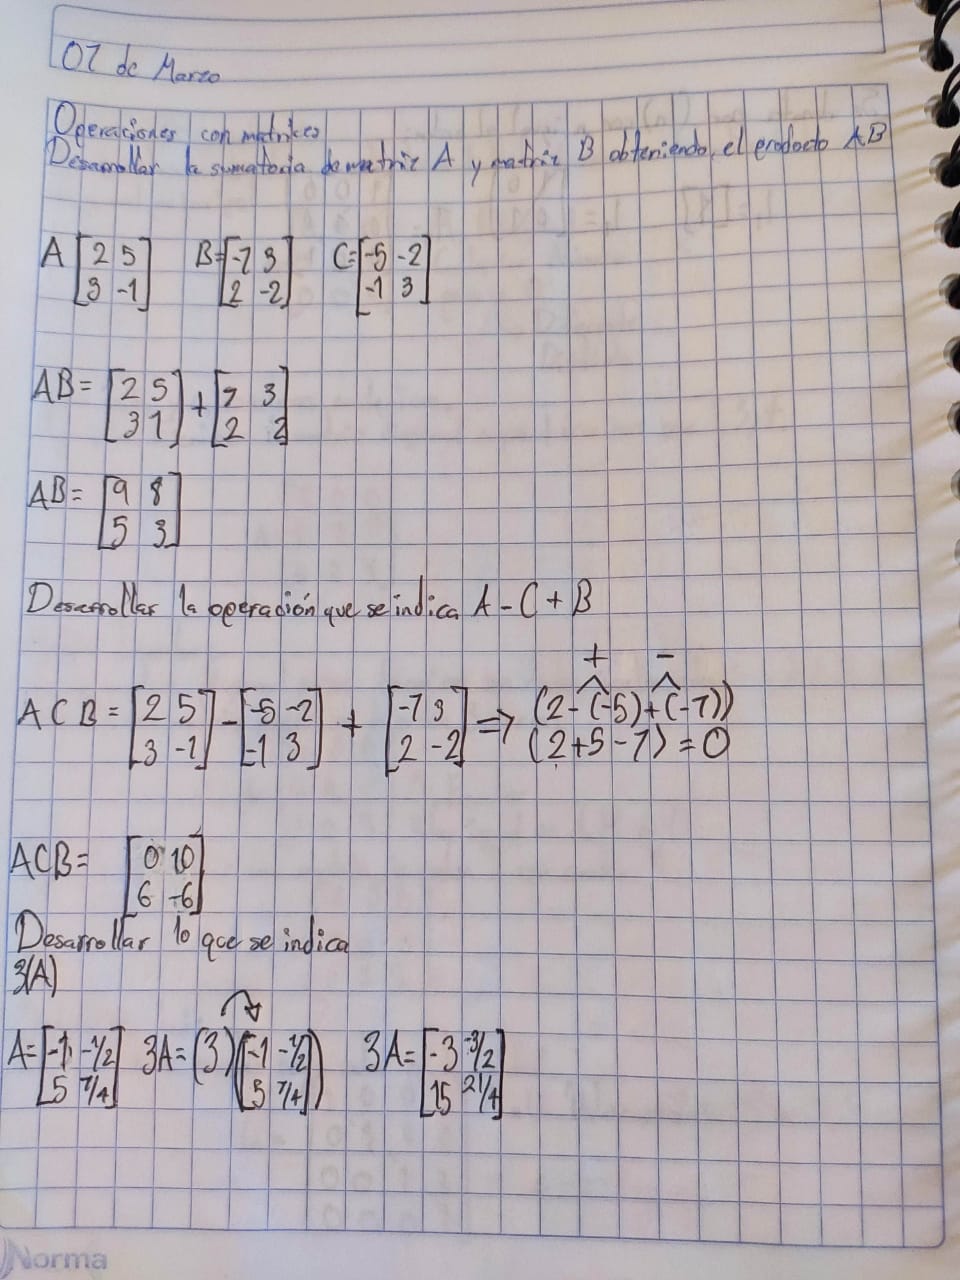 07 de Marzo
Operaciones con matrices
Desarrollar la sumatoria de matriz A y matriz B obteniendo el producto AB
A [2 5] B=[-7 3] C=[-5 -2]
[3 -1] [2 -2] [-1 3]
AB= [2 5] + [7 3]
[3 1] [2 2]
AB= [9 8]
[5 3]
Desarrollar la operación que se indica A - C + B
+ -
A C B = [2 5] - [-5 -2] + [-7 3] => (2-(-5)+(-7))
[3 -1] [-1 3] [2 -2] (2+5-7) = 0
ACB= [0 10]
[6 -6]
Desarrollar lo que se indica
3(A)
A=[-1 -1/2] 3A=(3)([-1 -1/2]) 3A=[-3 -3/2]
[5 7/4] [5 7/4] [15 21/4]
Norma